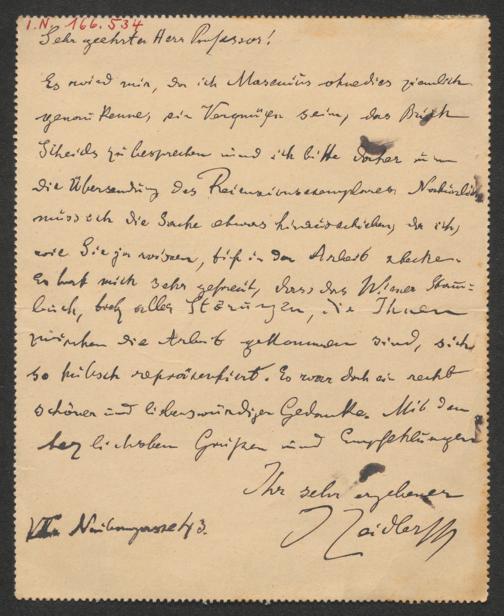 I.N. 166.534
Sehr geehrter Herr Professor!
Es wird mir, da ich Masenius ohnedies ziemlich
genau kenne, ein Vergnügen sein, das Buch
Scheids zu besprechen und ich bitte daher um
die Übersendung des Rezensionsexemplares. Natürlich
muss ich die Sache etwas hinausschieben, da ich,
wie Sie ja wissen, tief in der Arbeit stecke.
Es hat mich sehr gefreut, dass das Wiener
buch, trotz aller Störungen, die Ihnen
zwischen die Arbeit gekommen sind, sich
so hübsch repräsentiert. Es war doch ein recht
schöner und liebenswürdiger Gedanke. Mit den
herzlichsten Grüßen und Empfehlungen
Ihr sehr ergebener
J Zeidler
VII.